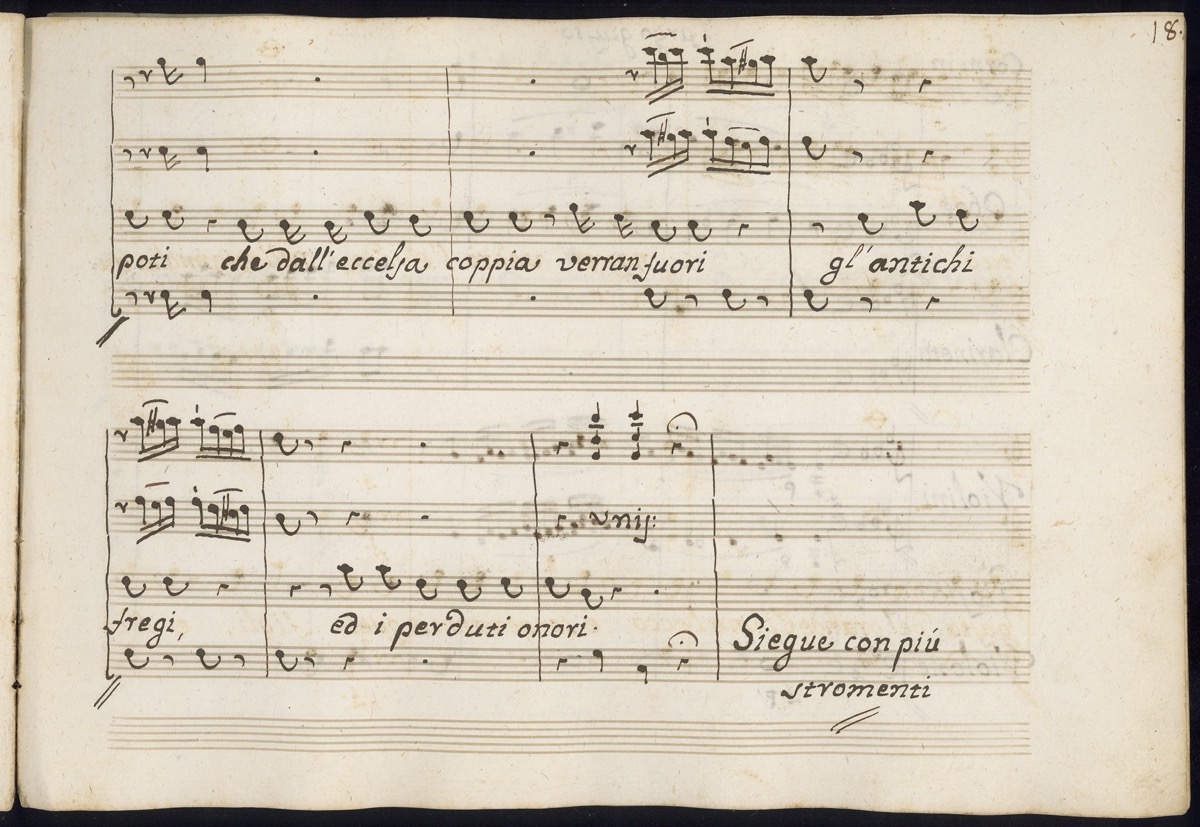 18.
poti che dall'eccelsa coppia verran fuori gl'antichi
unis:
fregi, ed i perduti onori.
Siegue con piú
stromenti